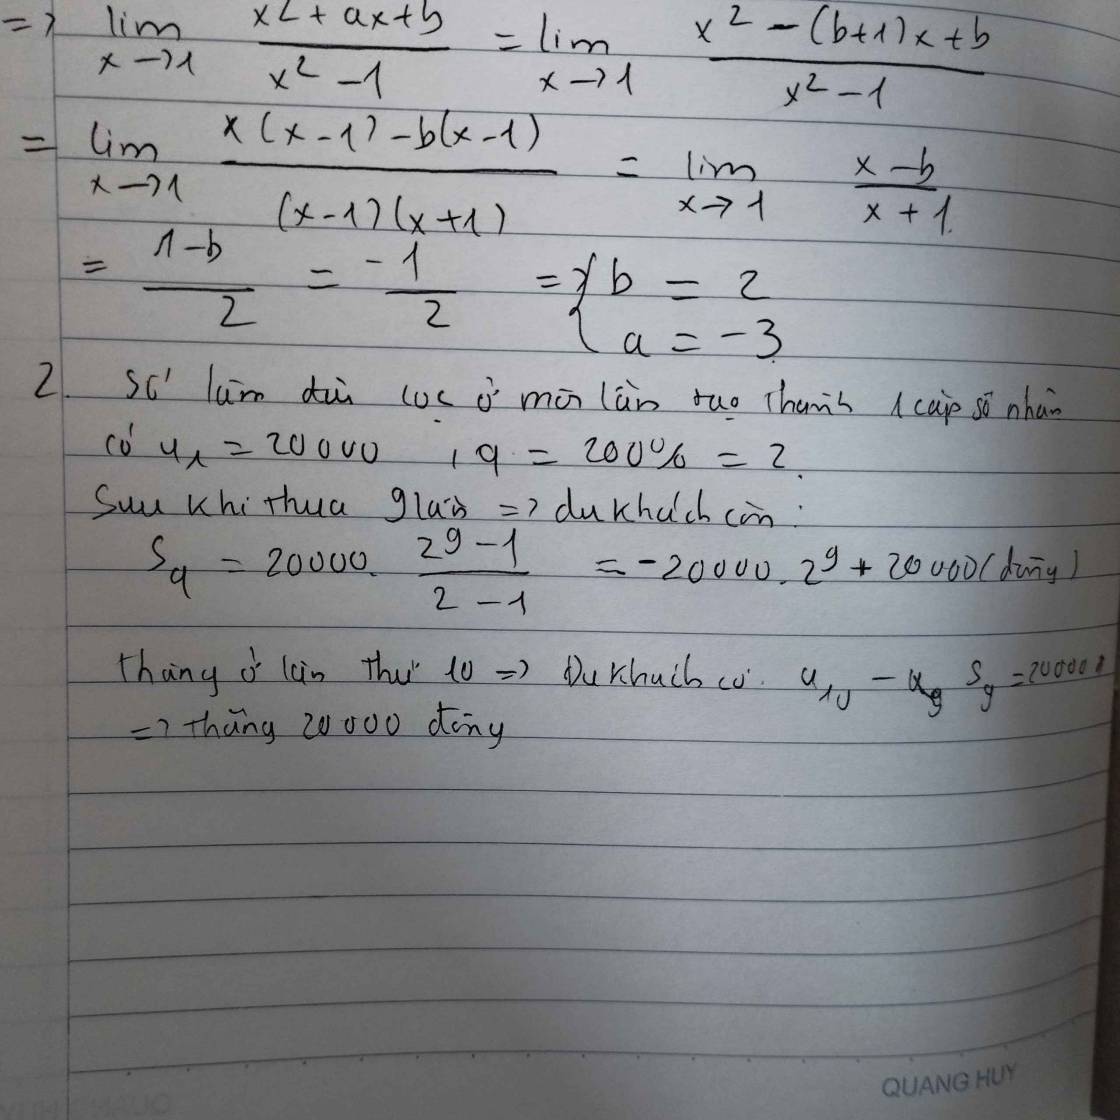 => lim x→1 (x² + ax + b)/(x² - 1) = lim x→1 (x² - (b+1)x + b)/(x² - 1)
= lim x→1 (x(x-1) - b(x-1))/((x-1)(x+1)) = lim x→1 (x-b)/(x+1)
= (1-b)/2 = -1/2 => { b = 2
a = -3
2. Số tiền đặt cược ở mỗi lần tạo thành 1 cấp số nhân
có u₁ = 20000 , q = 200% = 2.
Sau khi thua 9 lần => du khách còn:
S₉ = 20000. (2⁹ - 1)/(2 - 1) = -20000. 2⁹ + 20000 (đồng)
thắng ở lần thứ 10 => Du khách có. u₁₀ - S₉ = 20000
=> thắng 20000 đồng
QUANG HUY